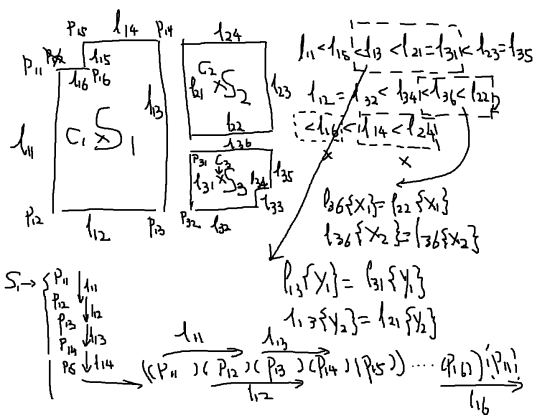 P15 l14 P14
l15
P11 l16 P16
l11 C1 S1 l13
P12 l12 P13
l24
C2 S2
l21 l23
l22
l36
P31 C3
l31 S3 l34 l35
l33
P32 l32
l11 < l15 < l13 < l21 = l31 < l23 = l35
l12 = l32 < l34 < l36 < l22
< l16 < l14 < l24
x x
l36{x1} = l22{x1}
l36{x2} = l36{x2}
l13{y1} = l31{y1}
l13{y2} = l21{y2}
S1 → { P11 ↓ l11
P12 ↓ l12
P13 ↓ l13
P14 ↓ l14
P15
l11 l13
((P11)(P12)(P13)(P14)(P15)) ···· (P16))(P11)
l12 l16